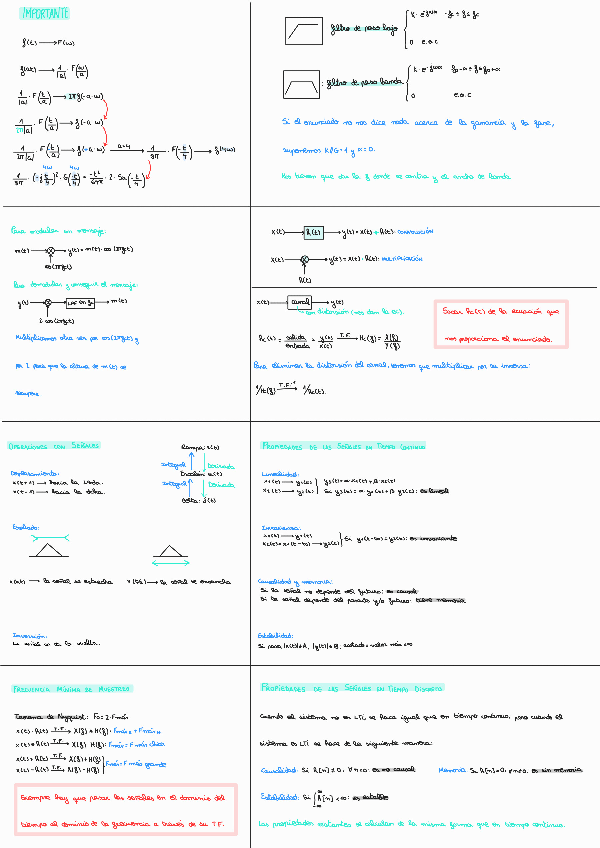 IMPORTANTE
f(t) → F(w)
f(at) → 1/|a| · F(w/a)
1/|a| · F(t/a) → 2πf(-a·w)
1/2π|a| · F(t/a) → f(-a·w)
1/2π|a| · F(t/a) → f(-a·w) a=4 → 1/8π · F(-t/4) → f(4w)
: filtro de paso bajo
0 e.o.c
: filtro de paso banda
0 e.o.c
Si el enunciado no nos dice nada acerca de la ganancia y la fase,
suponemos K=1 y α=0.
Nos tienen que dar la f donde se centra y el ancho de banda.
Para modular un mensaje:
m(t) → y(t) = m(t) · cos(2πfct)
cos(2πfct)
Para demodular y conseguir el mensaje:
y(t) → LPF en fx → m(t)
2 cos(2πfct)
Multiplicamos otra vez por cos(2πfct) y
por 2 para que la altura de m(t) se
recupere
x(t) → h(t) → y(t) = x(t) * h(t): CONVOLUCIÓN
x(t) → y(t) = x(t) · h(t): MULTIPLICACIÓN
h(t)
x(t) → canal → y(t)
con distorsión (nos dan la ec).
Sacar hc(t) de la ecuación que
nos proporciona el enunciado.
Para eliminar la distorsión del canal, tenemos que multiplicar por su inversa:
1/H(f) T.F⁻¹ → 1/hc(t)
OPERACIONES CON SEÑALES
Rampa: r(t)
Integral Derivada
Escalón: u(t)
Integral Derivada
Delta: δ(t)
Desplazamiento:
x(t+1) → hacia la izqda.
x(t-1) → hacia la dcha.
Escalado:
x(2t) → la señal se estrecha x(t/2) → la señal se ensancha
Inversión:
La señal se da la vuelta.
PROPIEDADES DE LAS SEÑALES EN TIEMPO CONTINUO
Linealidad:
x1(t) → y1(t)
x2(t) → y2(t)
Invarianza:
x1(t) → y1(t)
x2(t) = x1(t-t0) → y2(t)
Si y1(t-t0) = y2(t): es invariante
Causalidad y memoria:
Si la señal no depende del futuro: es causal
Si la señal depende del pasado y/o futuro: tiene memoria
Estabilidad:
FRECUENCIA MÍNIMA DE MUESTREO
Teorema de Nyquist: Fs = 2·Fmáx
x(t) · h(t) T.F → X(f) * H(f): Fmáx + Fmáx
x(t) * h(t) T.F → X(f) · H(f): Fmáx = Fmáx chica
x(t) + h(t) T.F → X(f) + H(f)
x(t) - h(t) T.F → X(f) - H(f)
Fmáx = F máx grande
Siempre hay que pasar las señales en el dominio del
tiempo al dominio de la frecuencia a través de su T.F.
PROPIEDADES DE LAS SEÑALES EN TIEMPO DISCRETO
Cuando el sistema no es LTI, se hace igual que en tiempo continuo, pero cuando el
sistema es LTI se hace de la siguiente manera:
Causalidad: Si h[n] ≠ 0, ∀n<0: es no causal Memoria: Si h[n]=0, n≠0: es sin memoria
Las propiedades restantes se calculan de la misma forma que en tiempo continuo.